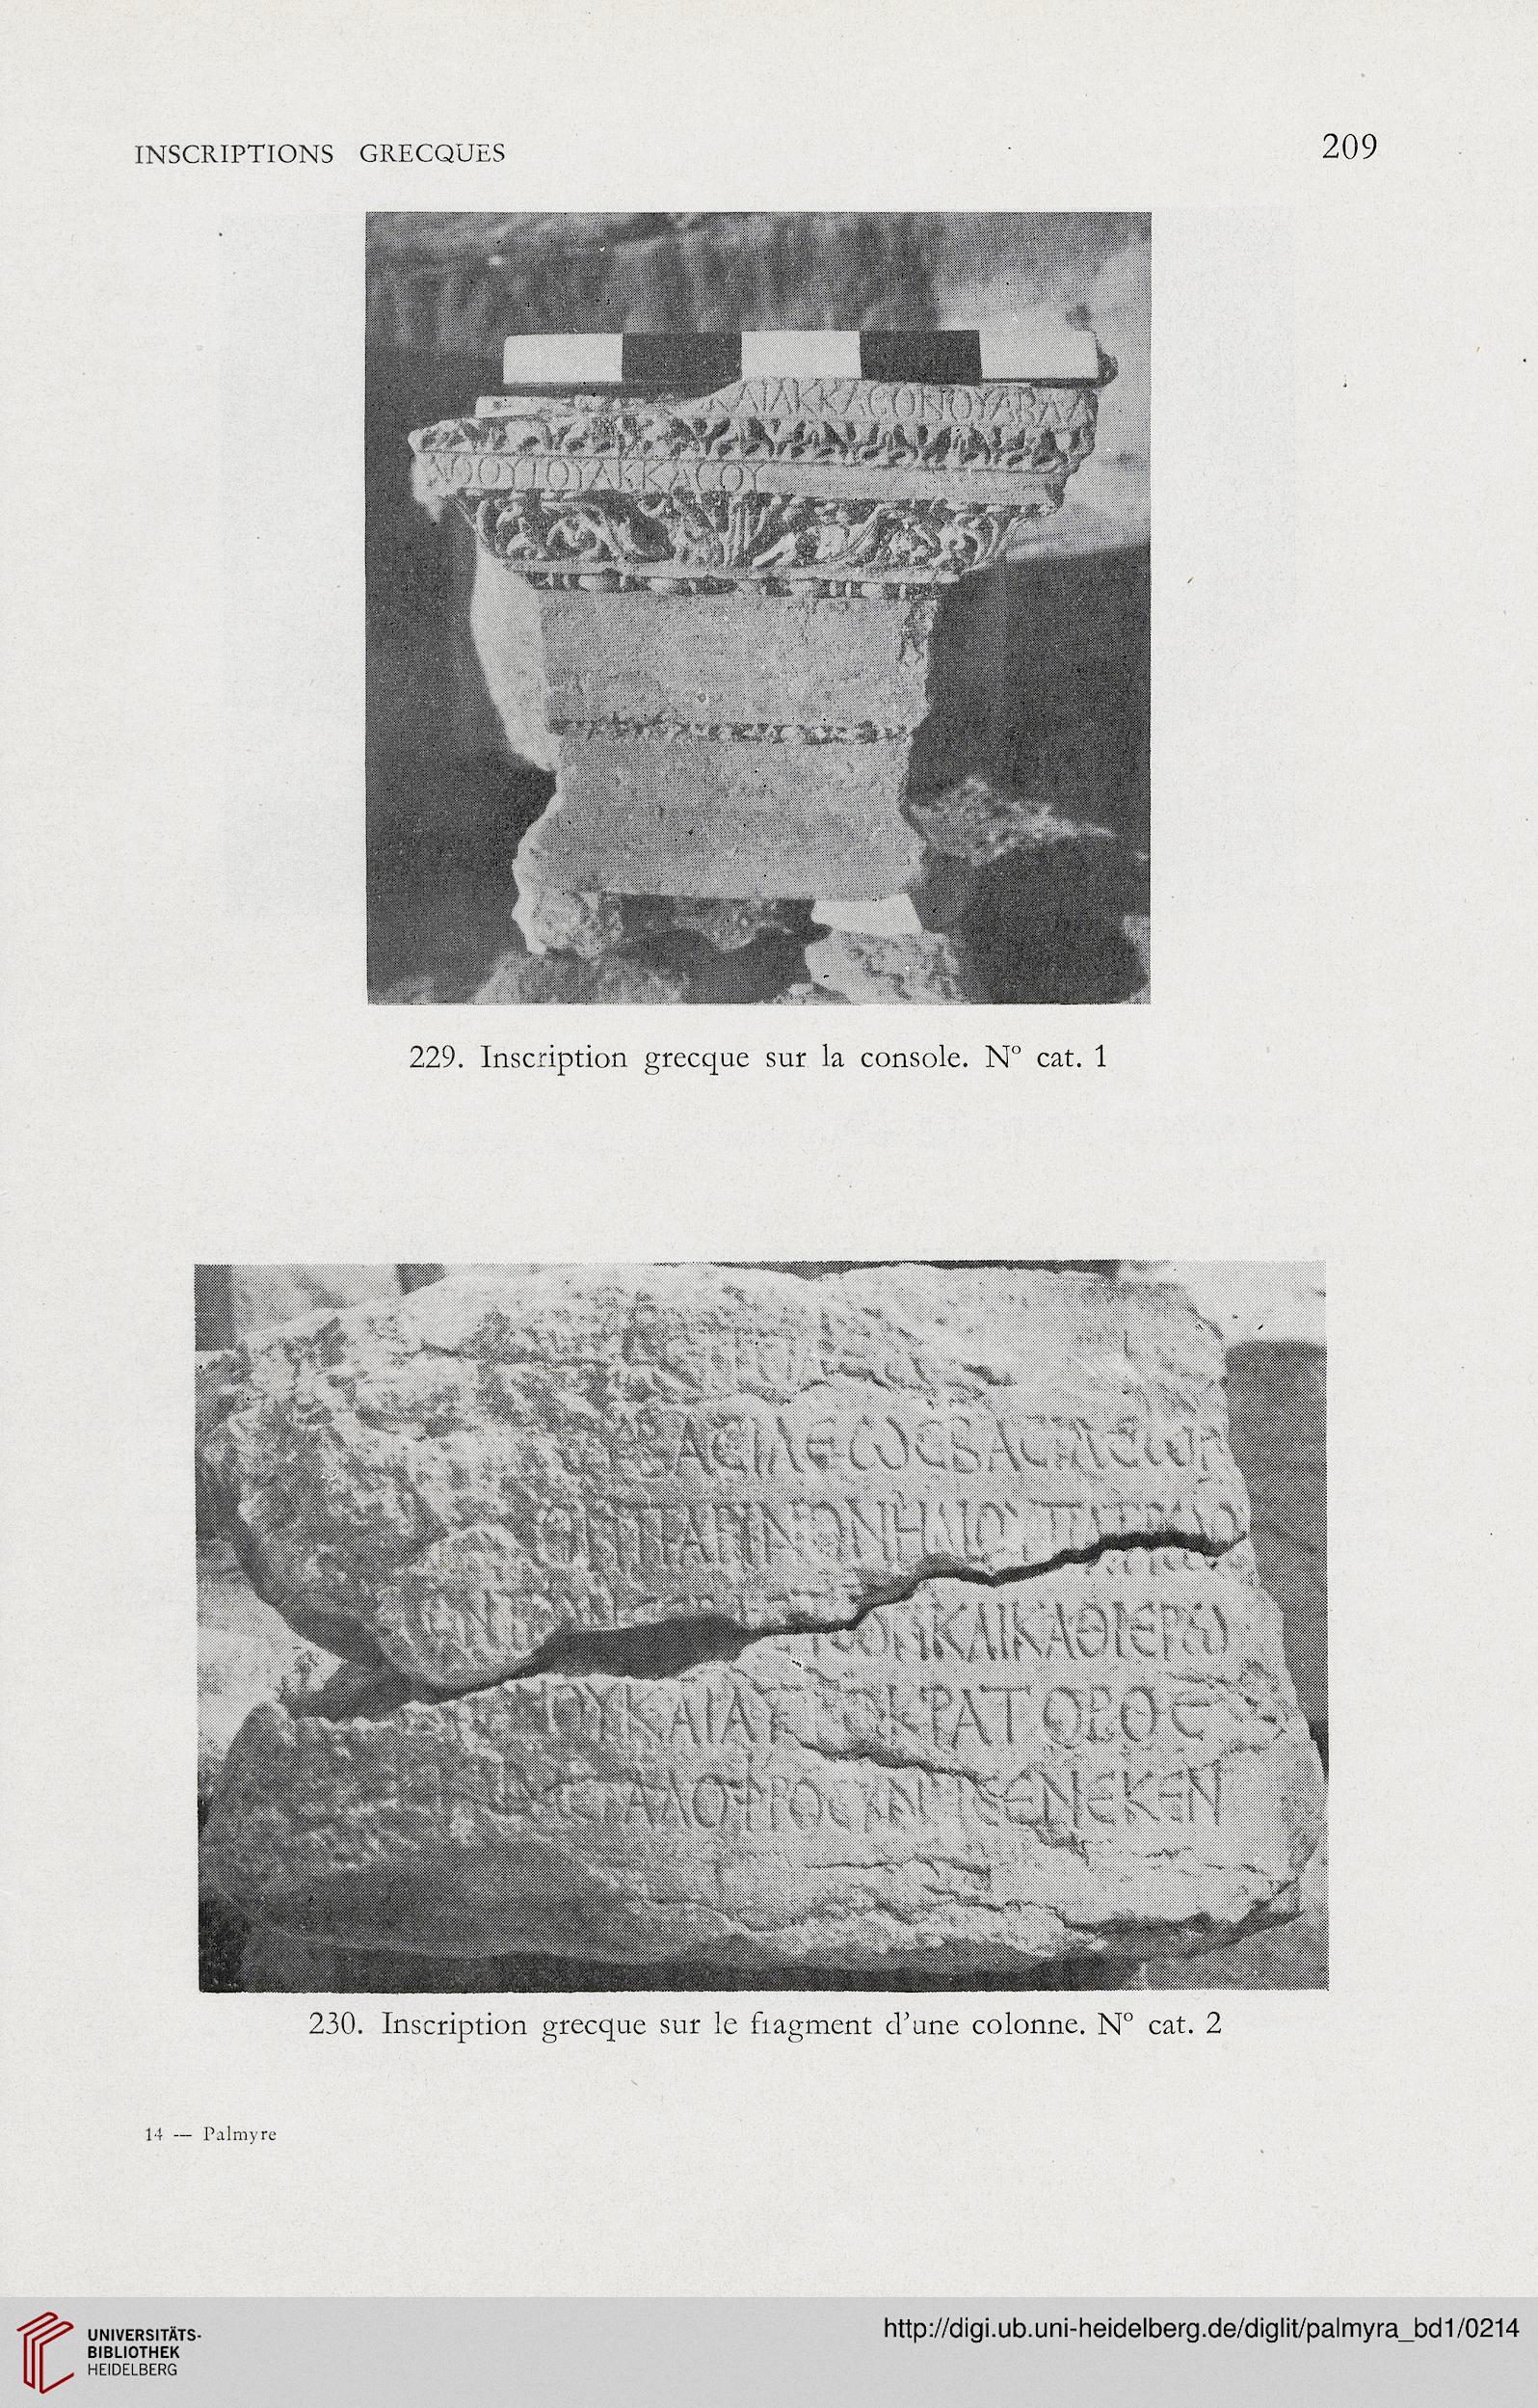 INSCRIPTIONS GRECQUES
209
ΚΑΙΑΚΚΑϹΟΝΟΥΑΒΑΛ
ΑΘΟΥΤΟΥΑΚΚΑϹΟΥ
229. Inscription grecque sur la console. N° cat. 1
ΒΑϹΙΛΕωϹΒΑϹΙΛΕωΝ
ΚΑΙΚΑΘΙΕΡω
ΟΥΚΑΙΑΥΤΟΚΡΑΤΟΡΟϹ
ΕΝΕΚΕΝ
230. Inscription grecque sur le fragment d'une colonne. N° cat. 2
14 — Palmyre
UNIVERSITÄTS-
BIBLIOTHEK
HEIDELBERG
http://digi.ub.uni-heidelberg.de/diglit/palmyra_bd1/0214